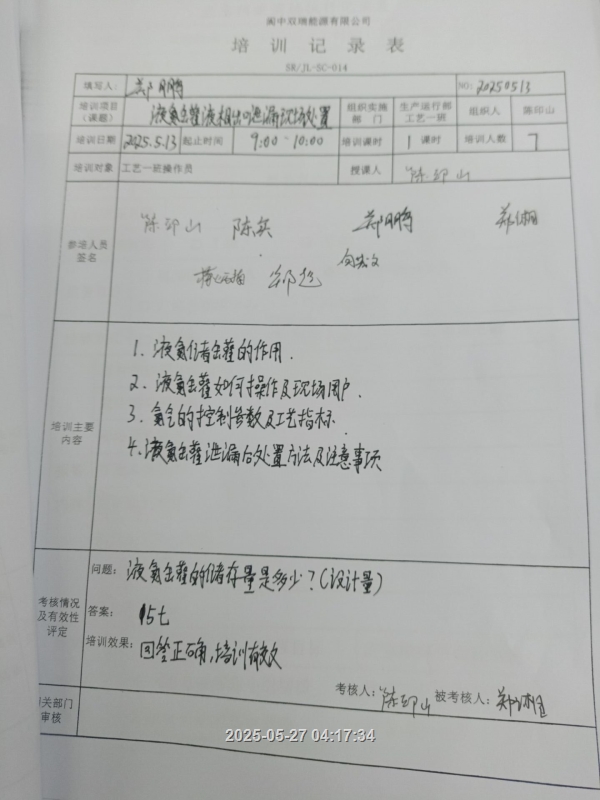 阆中双瑞能源有限公司
培训记录表
SR/JL-SC-014
填写人: 郑鹏 NO: 20250513
培训项目(课题) 液氨罐液相出口泄漏现场处置 组织实施部门 生产运行部工艺一班 组织人 陈印山
培训日期 2025.5.13 起止时间 9:00-10:00 培训课时 1课时 培训人数 7
培训对象 工艺一班操作员 授课人 陈印山
参培人员签名
陈印山 陈 郑鹏 郑
郑
培训主要内容
1. 液氨储罐的作用.
2. 液氨罐如何操作及现场用户.
3. 氨气的控制参数及工艺指标.
4. 液氨罐泄漏后处置方法及注意事项
考核情况及有效性评定
问题: 液氨罐的储存量是多少?(设计量)
答案: 15t
培训效果: 回答正确,培训有效
考核人: 陈印山 被考核人: 郑
关部门审核
2025-05-27 04:17:34